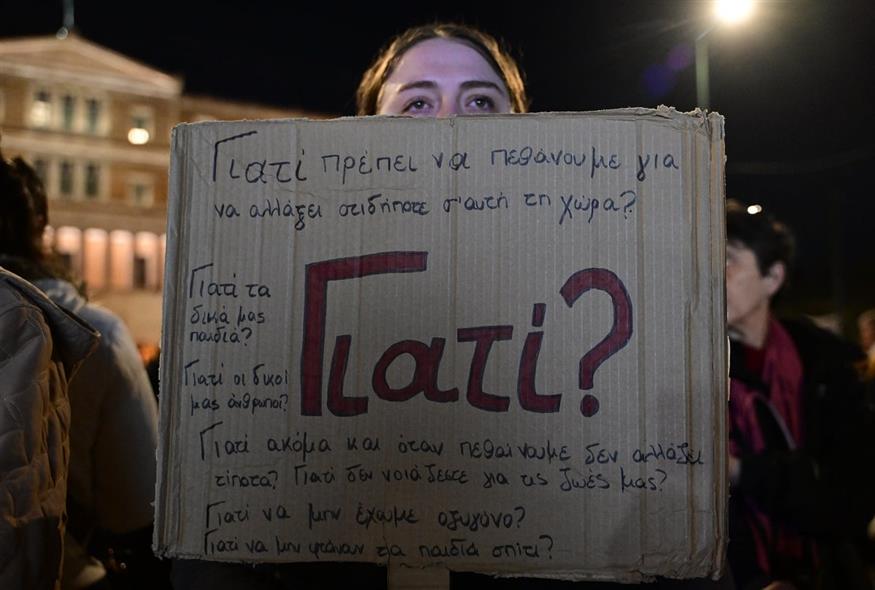 Γιατί πρέπει να πεθάνουμε για
να αλλάξει οτιδήποτε σ'αυτή τη χώρα?
Γιατί τα
δικά μας
παιδιά?
Γιατί οι δικοί
μας άνθρωποι?
Γιατί?
Γιατί ακόμα και όταν πεθαίνουμε δεν αλλάζει
τίποτα? Γιατί δεν νοιάζεστε για τις ζωές μας?
Γιατί να μην έχουμε οξυγόνο?
Γιατί να μην φτάναν τα παιδιά σπίτι?